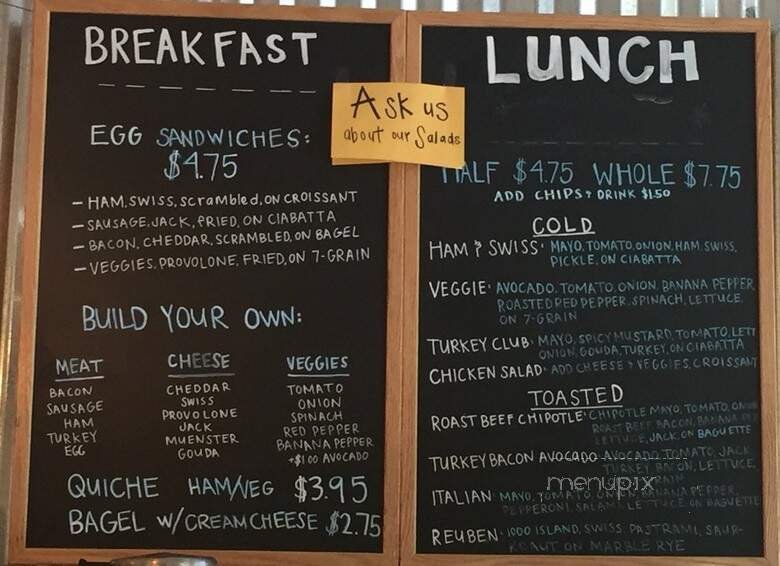 BREAKFAST
EGG SANDWICHES:
$4.75
- HAM, SWISS, scrambled, ON CROISSANT
- SAUSAGE, JACK, FRIED, ON CIABATTA
- BACON, CHEDDAR, SCRAMBLED, ON BAGEL
- VEGGIES, PROVOLONE, FRIED, ON 7-GRAIN
BUILD YOUR OWN:
MEAT
BACON
SAUSAGE
HAM
TURKEY
EGG
CHEESE
CHEDDAR
SWISS
PROVOLONE
JACK
MUENSTER
GOUDA
VEGGIES
TOMATO
ONION
SPINACH
RED PEPPER
BANANA PEPPER
+$1.00 AVOCADO
QUICHE HAM/VEG $3.95
BAGEL W/ CREAM CHEESE $2.75
Ask us
about our Salads
LUNCH
HALF $4.75 WHOLE $7.75
ADD CHIPS & DRINK $1.50
COLD
HAM & SWISS: MAYO, TOMATO, ONION, HAM, SWISS,
PICKLE, ON CIABATTA
VEGGIE: AVOCADO, TOMATO, ONION, BANANA PEPPER
ROASTED RED PEPPER, SPINACH, LETTUCE,
ON 7-GRAIN
TURKEY CLUB: MAYO, SPICY MUSTARD, TOMATO, LETT
ONION, GOUDA, TURKEY, ON CIABATTA
CHICKEN SALAD: ADD CHEESE & VEGGIES, CROISSANT
TOASTED
ROAST BEEF CHIPOTLE: CHIPOTLE MAYO, TOMATO, ONION
ROAST BEEF, BACON, BANANA PEP
LETTUCE, JACK, ON BAGUETTE
TURKEY BACON AVOCADO AVOCADO, TOMATO, JACK
TURKEY, BACON, LETTUCE,
GRAIN
menupix
ITALIAN: MAYO, TOMATO, ONION, BANANA PEPPER,
PEPPERONI, SALAMI, LETTUCE, ON BAGUETTE
REUBEN: 1000 ISLAND, SWISS, PASTRAMI, SAUR-
KRAUT ON MARBLE RYE